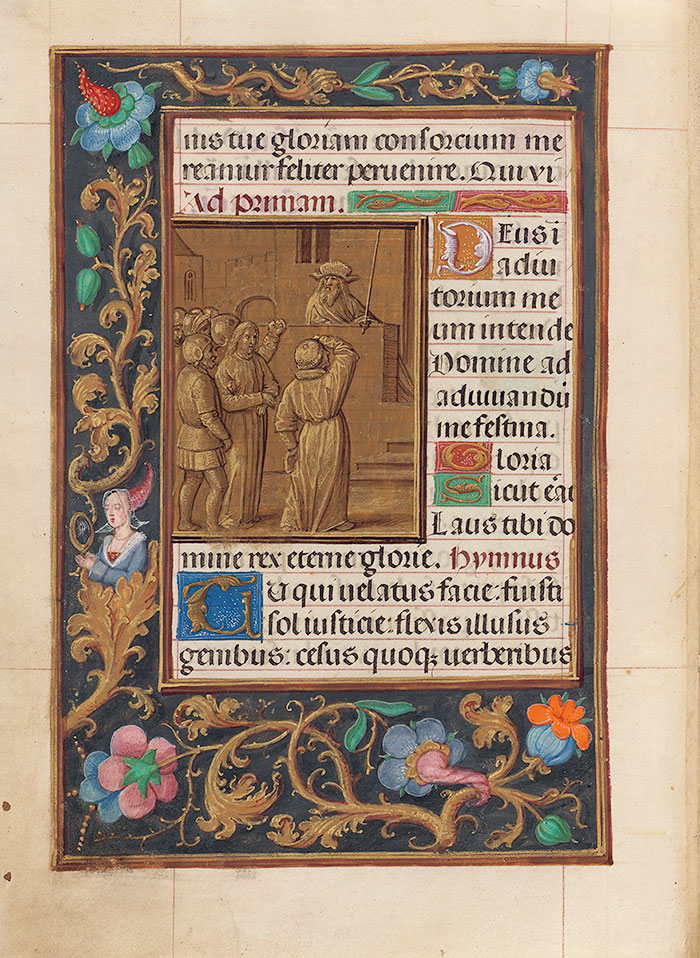 ins tue gloriam consorcium me
reamur feliter peruenire. Qui vi
Ad primam.
Deus ī
adiu
torium me
um intende
Domine ad
adiuuandū
me festina.
Gloria
Sicut erat
Laus tibi do
mine rex eterne glorie. Hymnus
Tu qui uelatus facie: fuisti
sol iusticie: flexis illusus
genibus: cesus quoqꝫ uerberibus